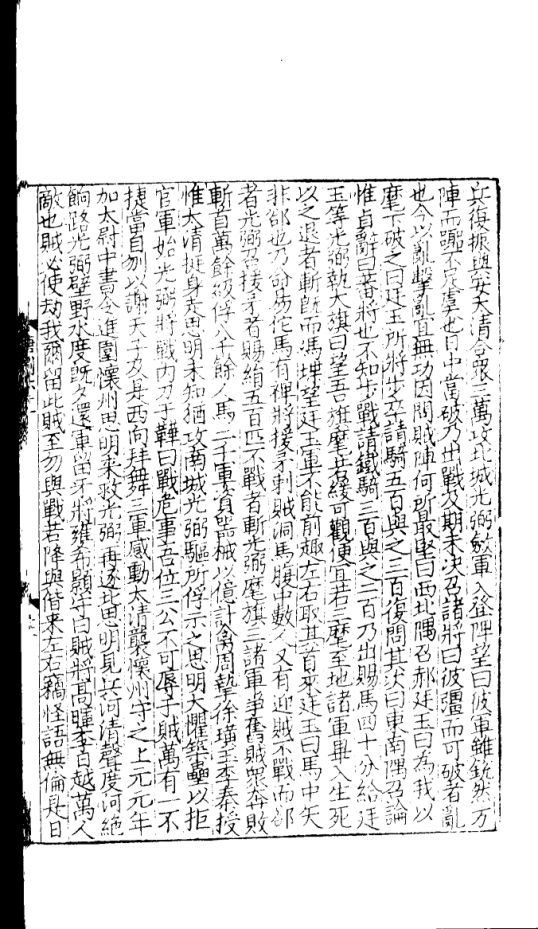 兵復振與安太清合衆三萬攻北城光弼歛軍入登陴望曰彼軍雖銳然方
陣而囂不足虞也日中當破乃出戰及期未決召諸將曰彼彊而可破者亂
也今以亂擊亂宜無功因問賊陣何所最堅曰西北隅召郝廷玉曰為我以
麾下破之曰廷玉所將步卒請騎五百與之三百復問其次曰東南隅召論
惟貞辭曰蕃將也不知步戰請鐵騎三百與之二百乃出賜馬四十分給廷
玉等光弼執大旗曰望吾旗麾若緩可觀便宜若三麾至地諸軍畢入生死
以之退者斬既而馮堞望廷玉軍不能前趣左右取其首來廷玉曰馬中矢
非卻也乃命易佗馬有裨將援矛刺賊洞馬腹中數人又有迎賊不戰而卻
者光弼召援矛者賜絹五百匹不戰者斬光弼麾旗三諸軍爭奮賊衆奔敗
斬首萬餘級俘八千餘人馬二千軍資器械以億計禽周摯徐璜玉李秦授
惟太清挺身走思明未知猶攻南城光弼驅所俘示之思明大懼築壘以拒
官軍始光弼將戰内刃于鞾曰戰危事吾位三公不可辱于賊萬有一不
捷當自刎以謝天子及是西向拜舞三軍感動太清襲懷州守之上元元年
加太尉中書令進圍懷州思明來救光弼再逐北思明見兵河清聲度河絶
餉路光弼壁野水度既夕還軍留牙將雍希顥守曰賊將髙暉李日越萬人
敵也賊必使劫我爾留此賊至勿與戰若降與偕來左右竊怪語無倫是日